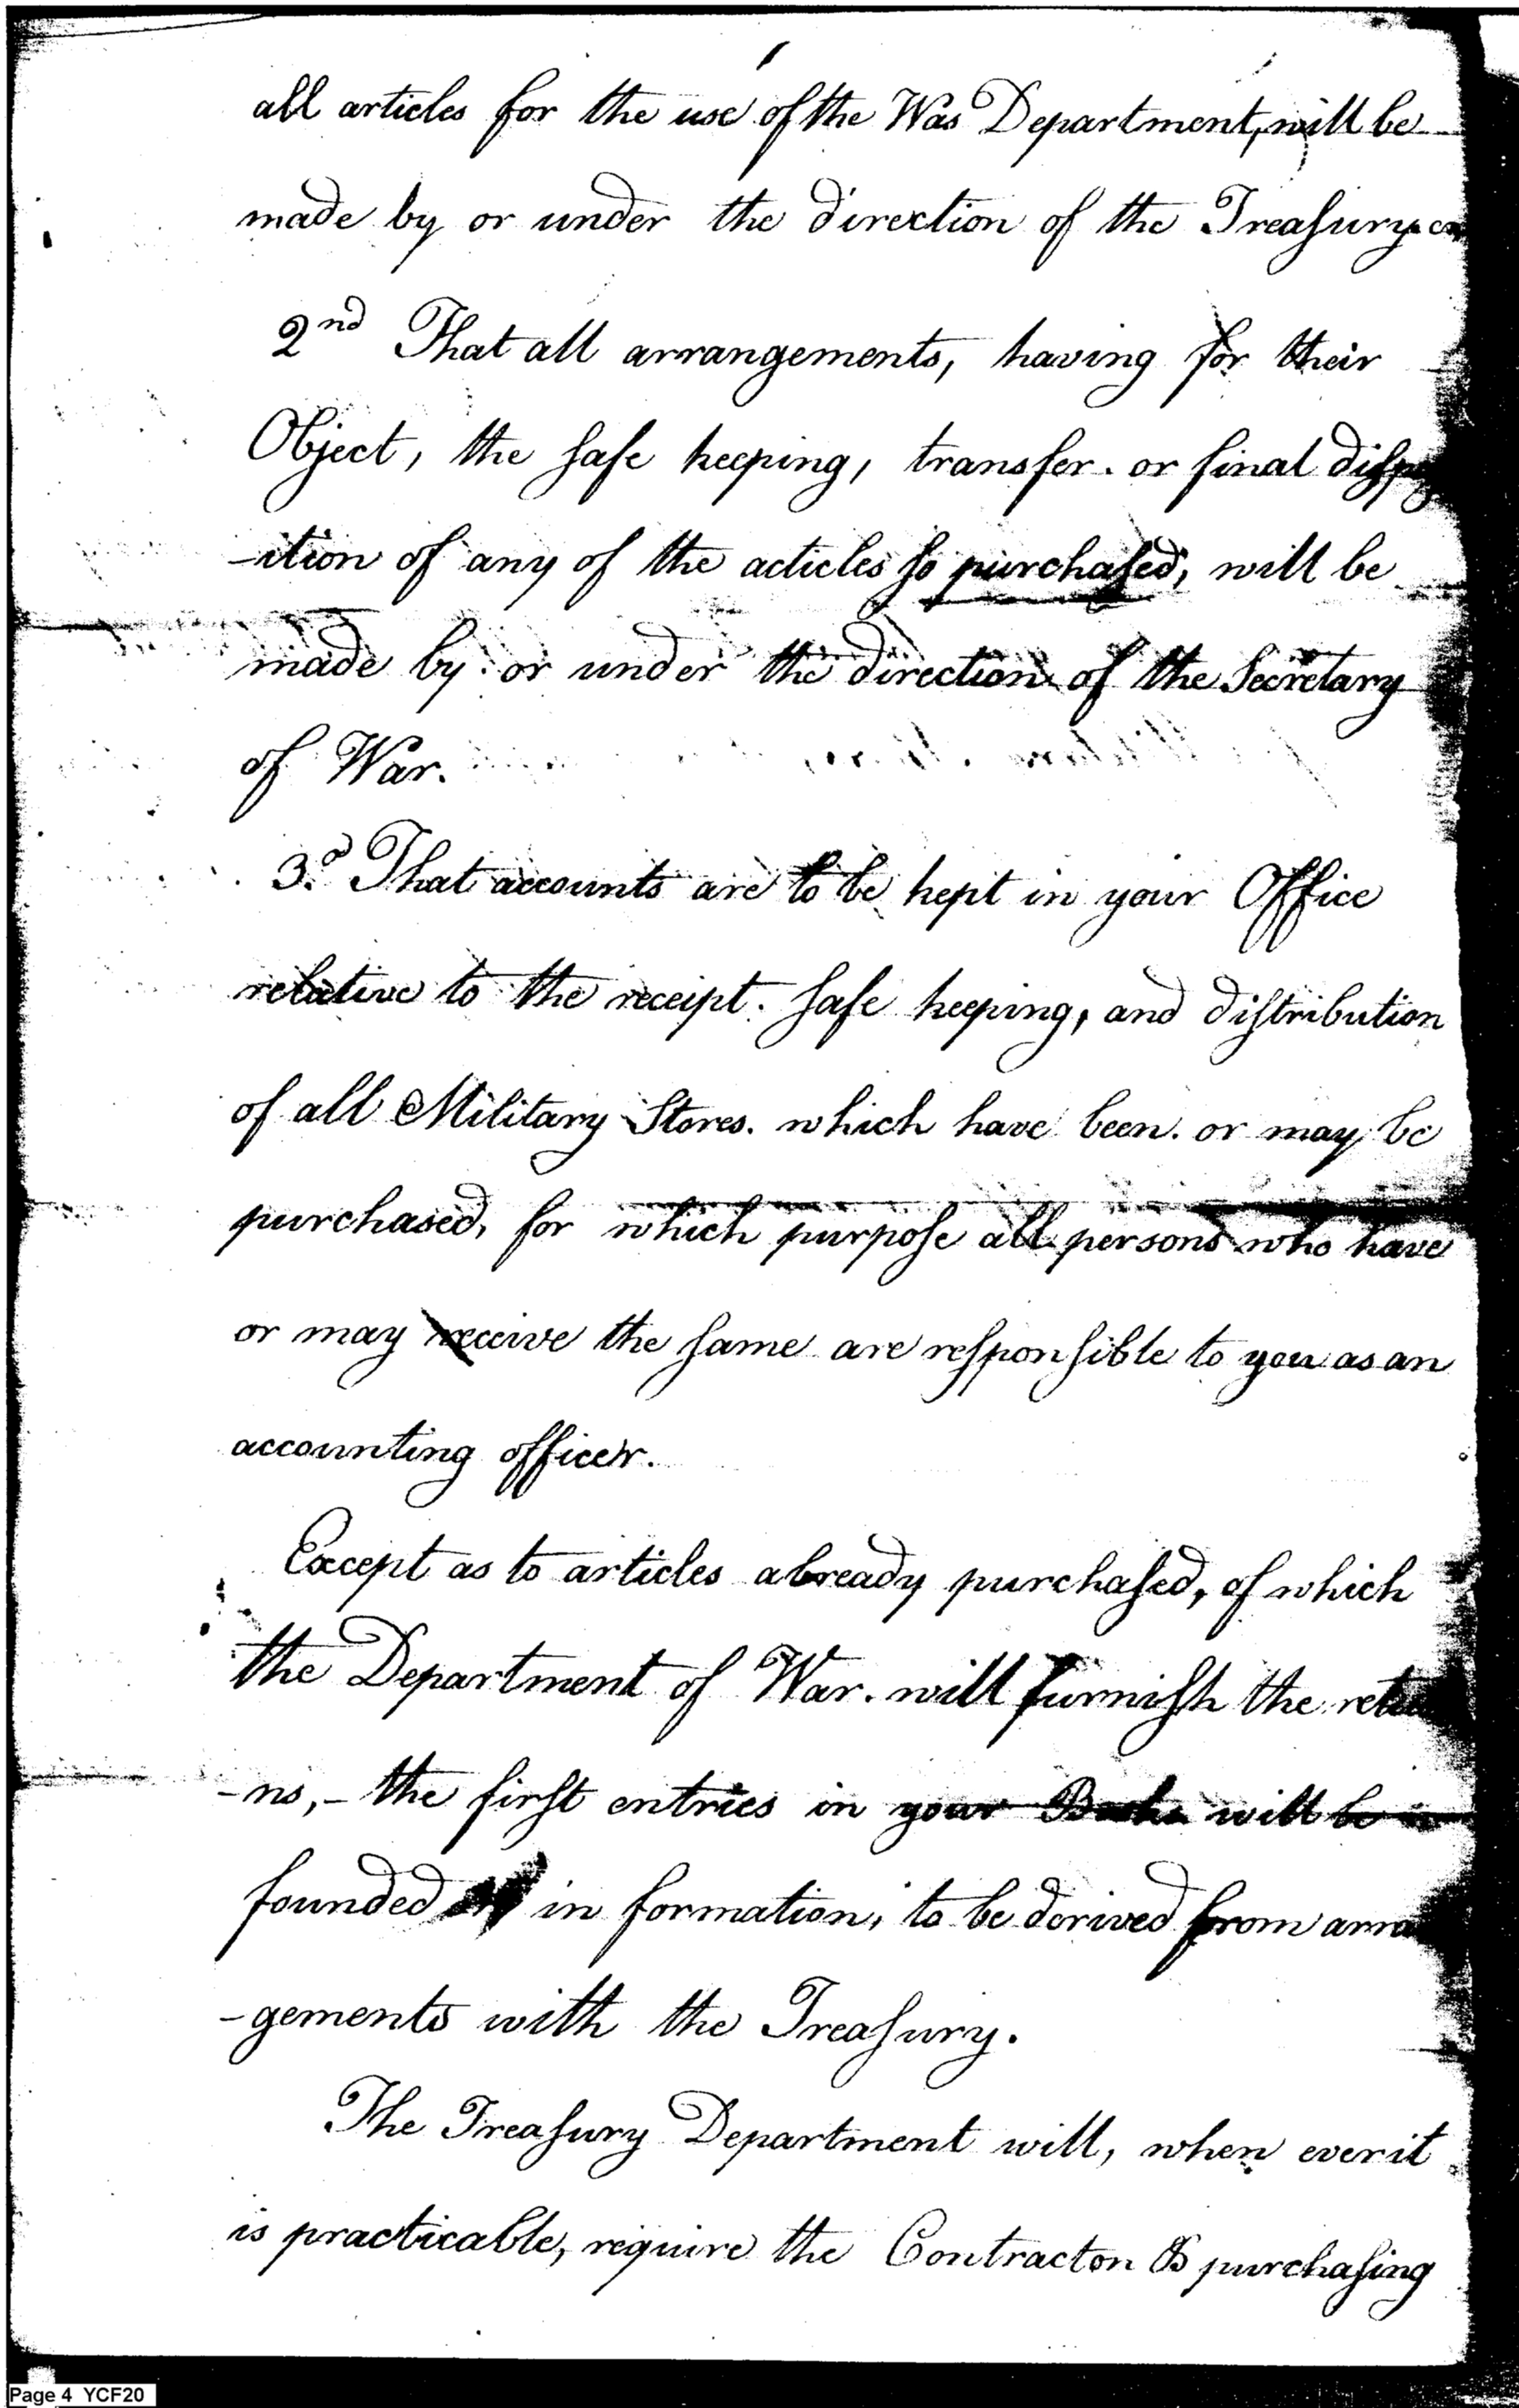 all articles for the use of the Was Department, will be
made by or under the direction of the Treasury
2nd That all arrangements, having for their
Object, the safe keeping, transfer. or final dispo
-ition of any of the acticles so purchased, will be
made by. or under the direction of the Secretary
of War.
3d. That accounts are to be kept in your Office
relative to the receipt. safe keeping, and distribution
of all Military Stores. which have been. or may be
purchased, for which purpose all persons who have
or may receive the same are responsible to you as an
accounting officer.
Except as to articles already purchased, of which
the Department of War. will furnish the retu
-ns, - the first entries in your Books will be
founded in formation, to be derived from arra
-gements with the Treasury.
The Treasury Department will, when ever it
is practicable, require the Contracton & purchasing
Page 4 YCF20